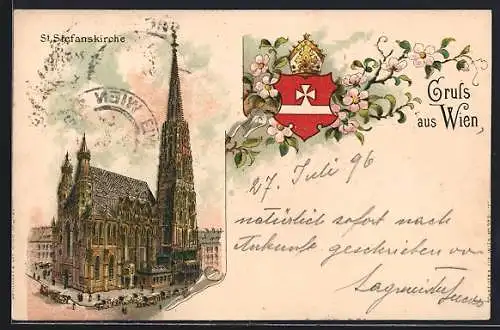 St. Stefanskirche
WIEN
Gruss
aus Wien
27. Juli 96
natürlich sofort nach
Ankunft geschrieben von